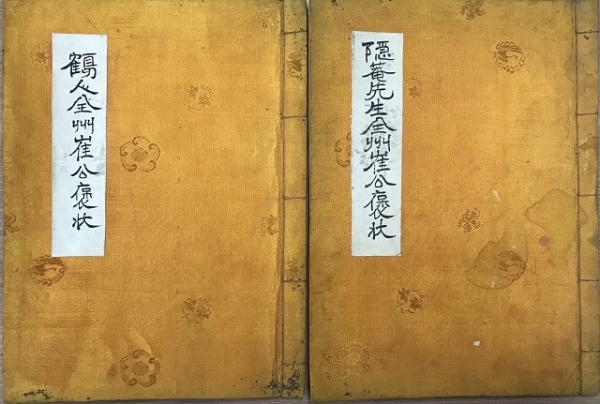 隱菴先生全州崔公褒狀
鶴人全州崔公褒狀